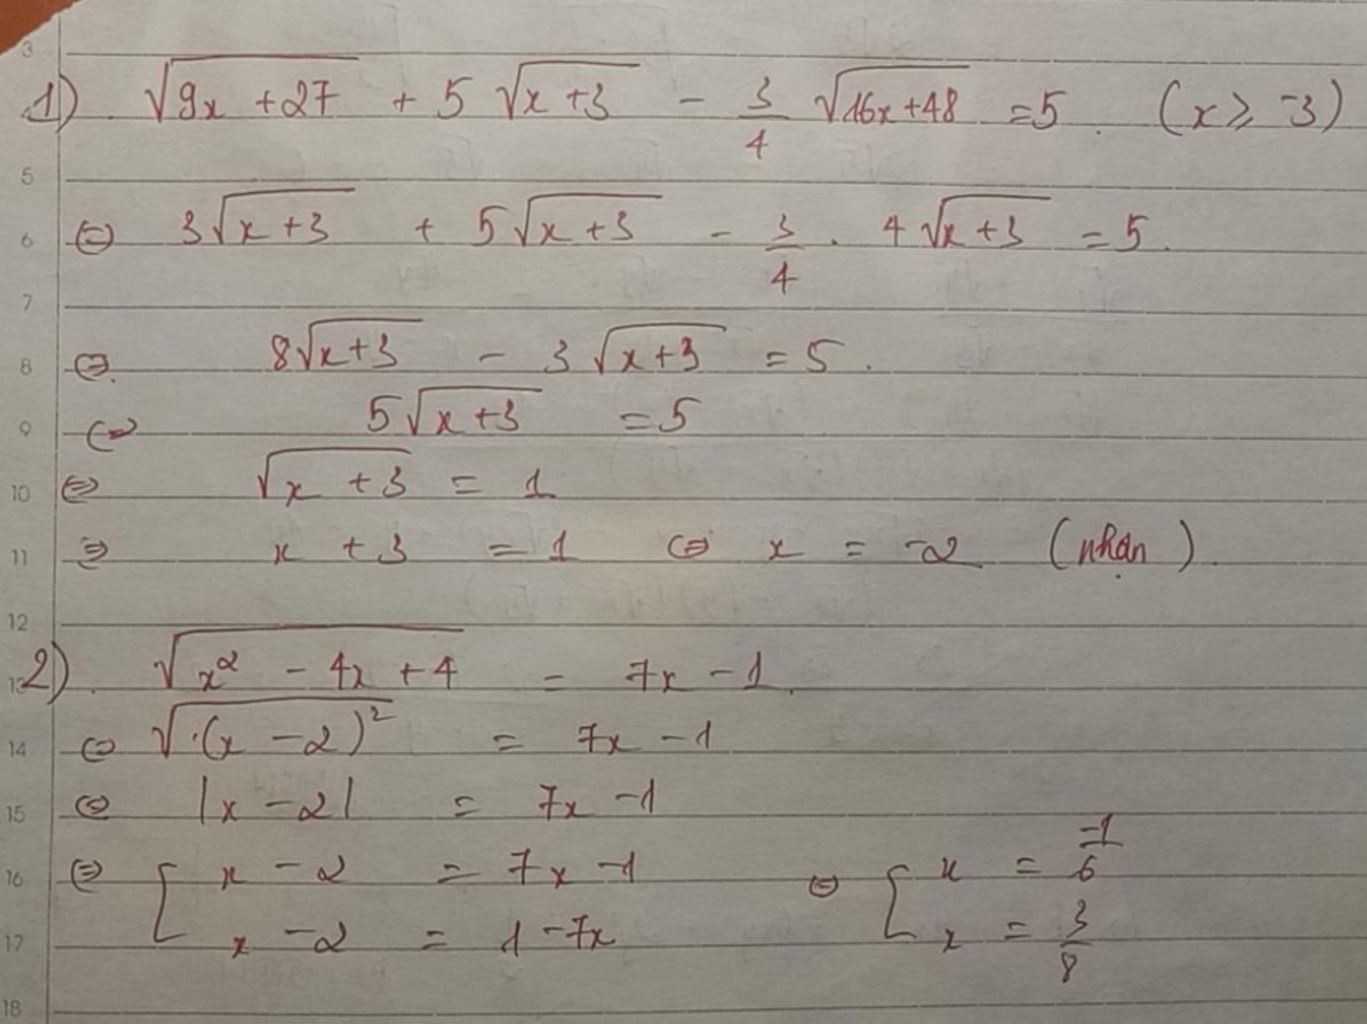 3
1) √(9x + 27) + 5 √(x + 3) - 3/4 √(16x + 48) = 5. (x ⩾ -3)
5
6 ⇔ 3√(x + 3) + 5√(x + 3) - 3/4 . 4√(x + 3) = 5.
7
8 ⇔. 8√(x + 3) - 3√(x + 3) = 5.
9 ⇔ 5√(x + 3) = 5
10 ⇔ √(x + 3) = 1
11 ⇔ x + 3 = 1 ⇔ x = -2 (nhận).
12
2). √(x² - 4x + 4) = 7x - 1.
14 ⇔ √(x - 2)² = 7x - 1
15 ⇔ |x - 2| = 7x - 1
16 ⇔ [ x - 2 = 7x - 1 ⇔ [ x = -1/6
17 x - 2 = 1 - 7x x = 3/8
18